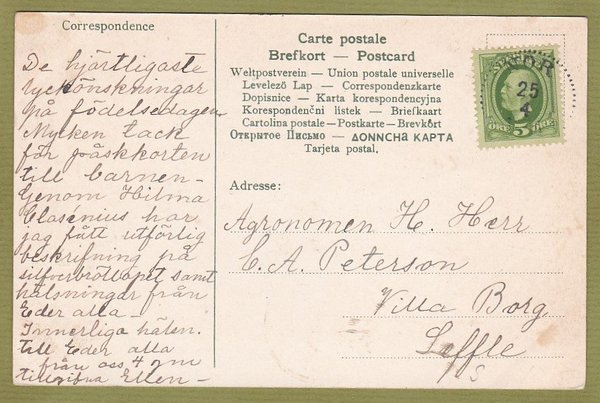 Correspondence
De hjärtligaste
lyckönskningar
på födelsedagen.
Mycken tack
för påskkorten
till barnen-
Genom Hilma
Clasenius har
jag fått utförlig
beskrifning på
silfverbröllopet samt
hälsningar från
Eder alla-
Innerliga häls.
till Eder alla
från oss 4 gm
tillgifna Ellen-
Carte postale
Brefkort — Postcard
Weltpostverein — Union postale universelle
Levelező Lap — Correspondenzkarte
Dopisnice — Karta korespondencyjna
Korespondenční listek — Briefkaart
Cartolina postale — Postkarte — Brevkort
Открытое Письмо — ΔΟΝΝCΗΑ ΚΑΡΤΑ
Tarjeta postal.
25
4
ÖRE 5 ÖRE
Adresse:
Agronomen H. Herr
C. A. Peterson
Villa Borg
Seffle